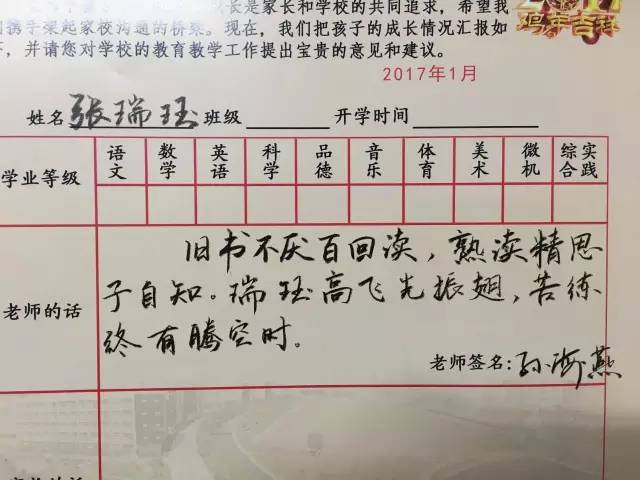 成长是家长和学校的共同追求，希望我
们携手架起家校沟通的桥梁。现在，我们把孩子的成长情况汇报如
下，并请您对学校的教育教学工作提出宝贵的意见和建议。
鸡年吉祥
2017年1月
姓名 张瑞珏 班级 开学时间
学业等级 语文 数学 英语 科学 品德 音乐 体育 美术 微机 综合实践
老师的话
旧书不厌百回读，熟读精思
子自知。瑞珏高飞先振翅，苦练
终有腾空时。
老师签名：孙海燕